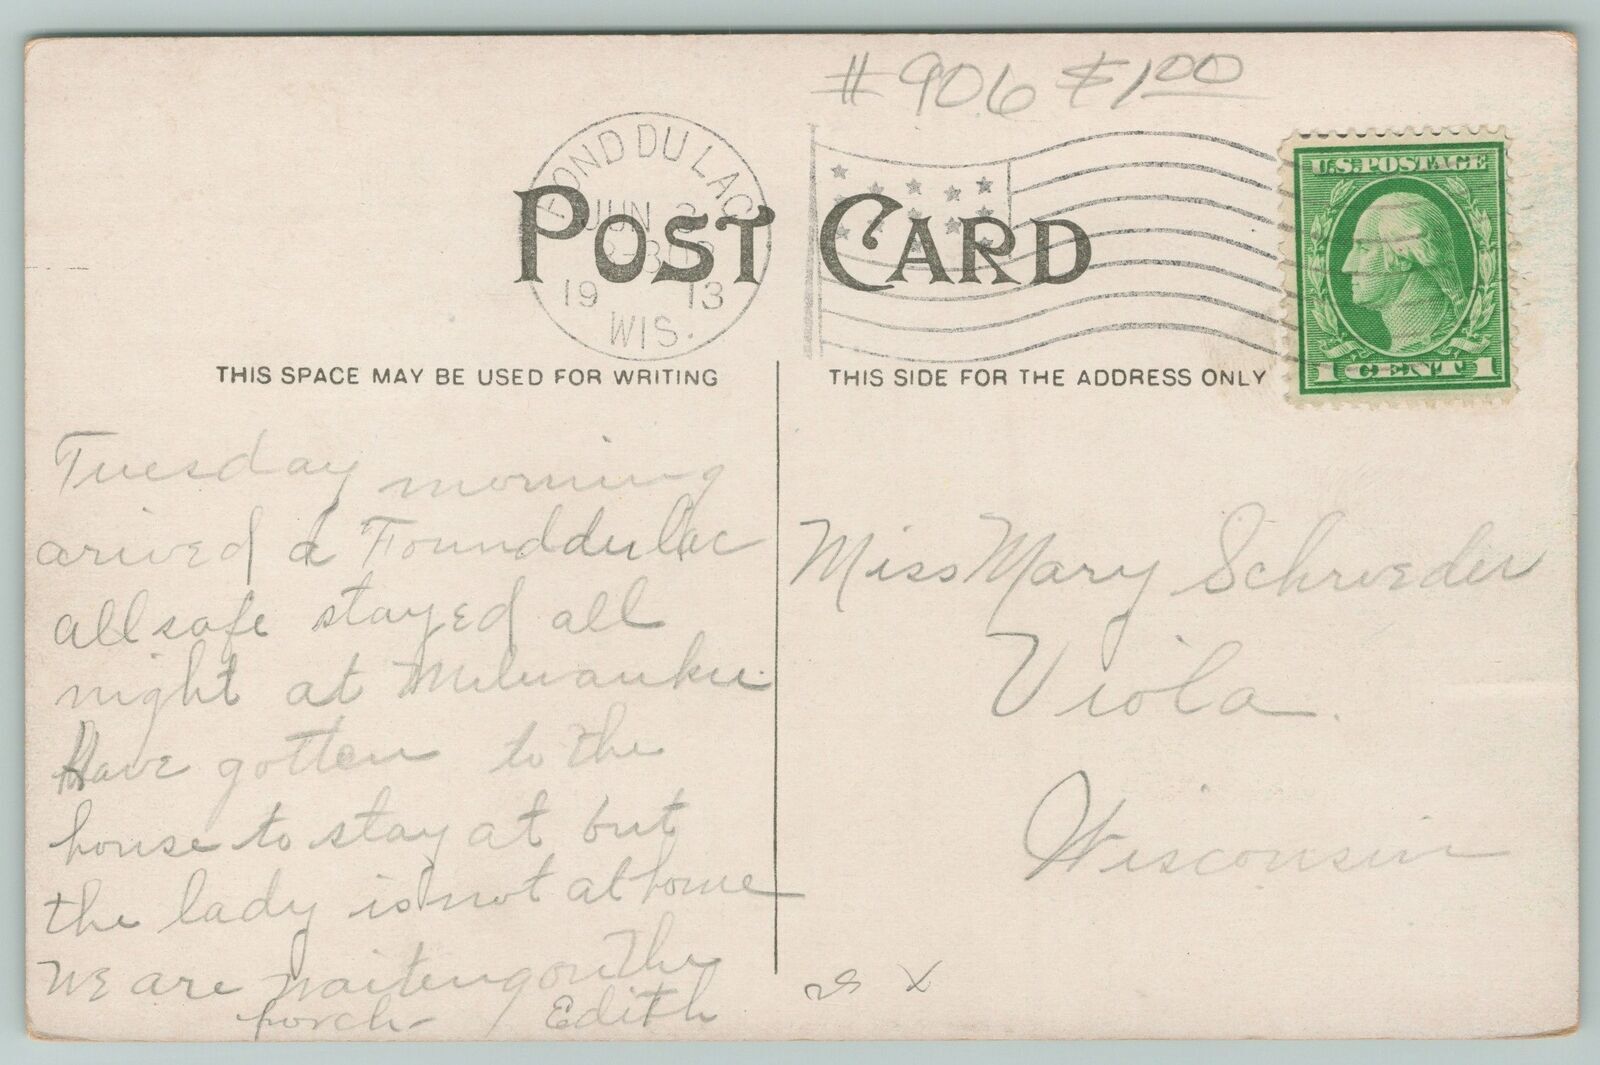 # 906 $1.00
FOND DU LAC
JUN
19 13
WIS.
POST CARD
U.S. POSTAGE
1 CENT 1
THIS SPACE MAY BE USED FOR WRITING
THIS SIDE FOR THE ADDRESS ONLY
Tuesday morning
arived a Founddulac
all safe stayed all
night at Milwaukee.
Have gotten to the
house to stay at but
the lady is not at home
We are waiteng on the
porch - Edith
Miss Mary Schroeder
Viola.
Wisconsin